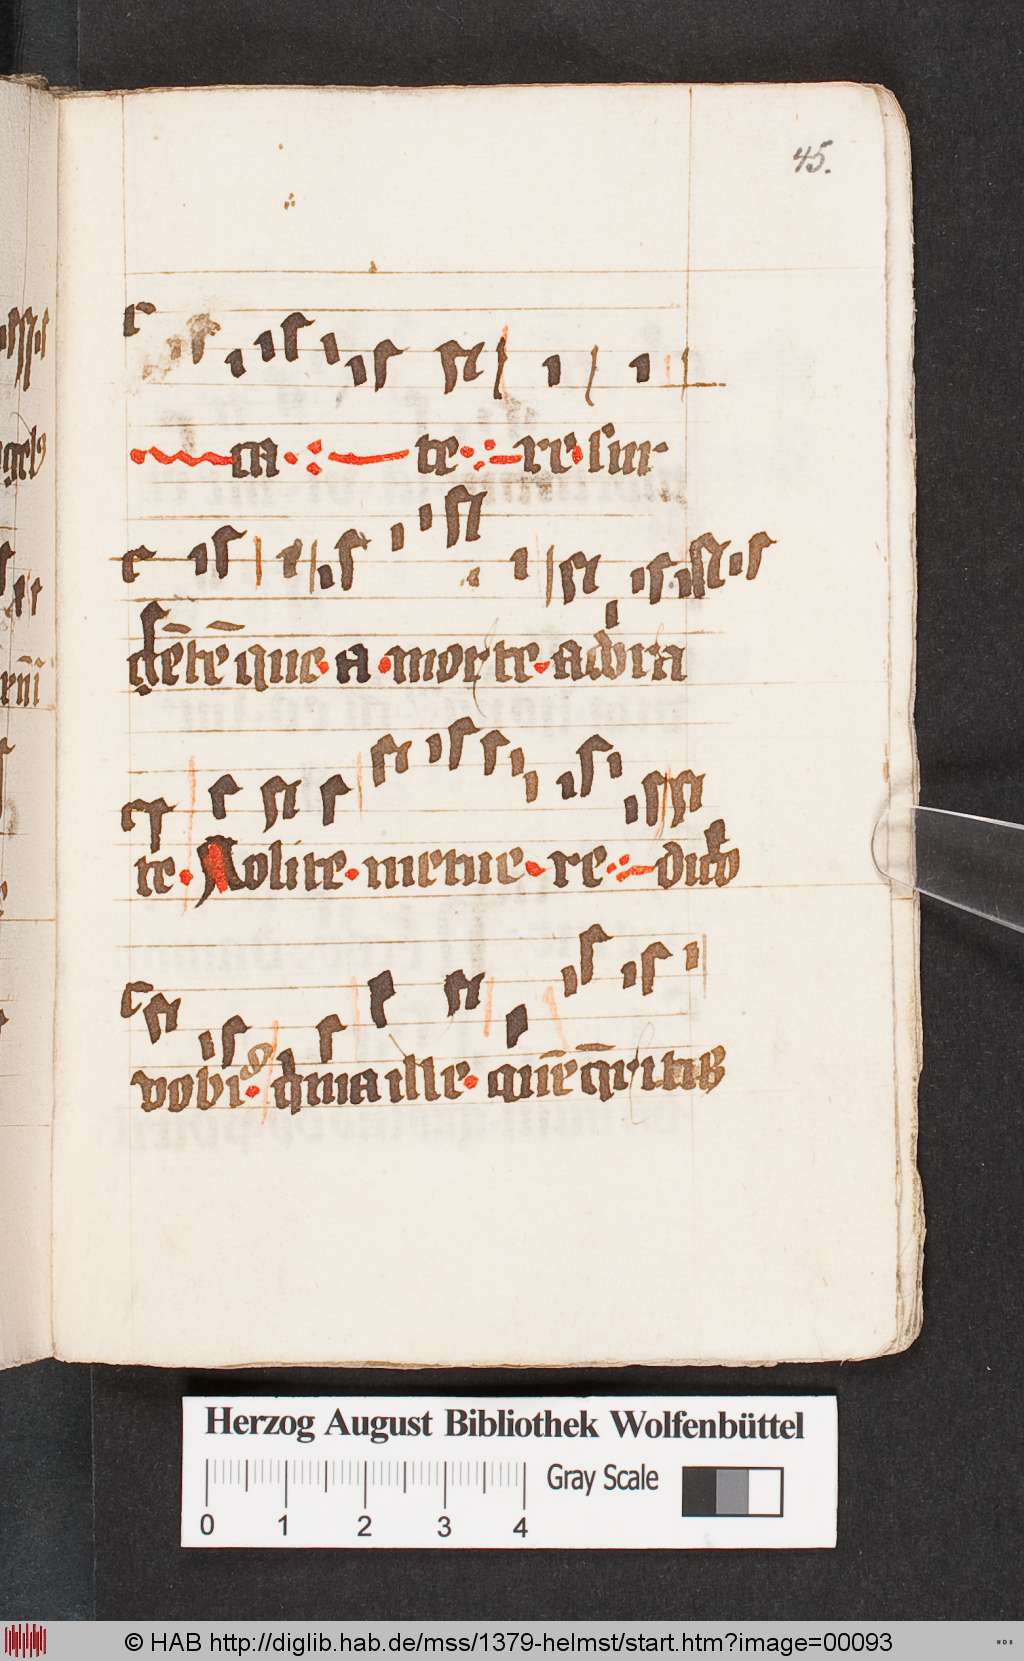 45.
ca te re sur
gētē que a morte adora
te Nolite metue re dico
vobis q̇ma ille quē q̄ritis
Herzog August Bibliothek Wolfenbüttel
0 1 2 3 4 Gray Scale
© HAB http://diglib.hab.de/mss/1379-helmst/start.htm?image=00093